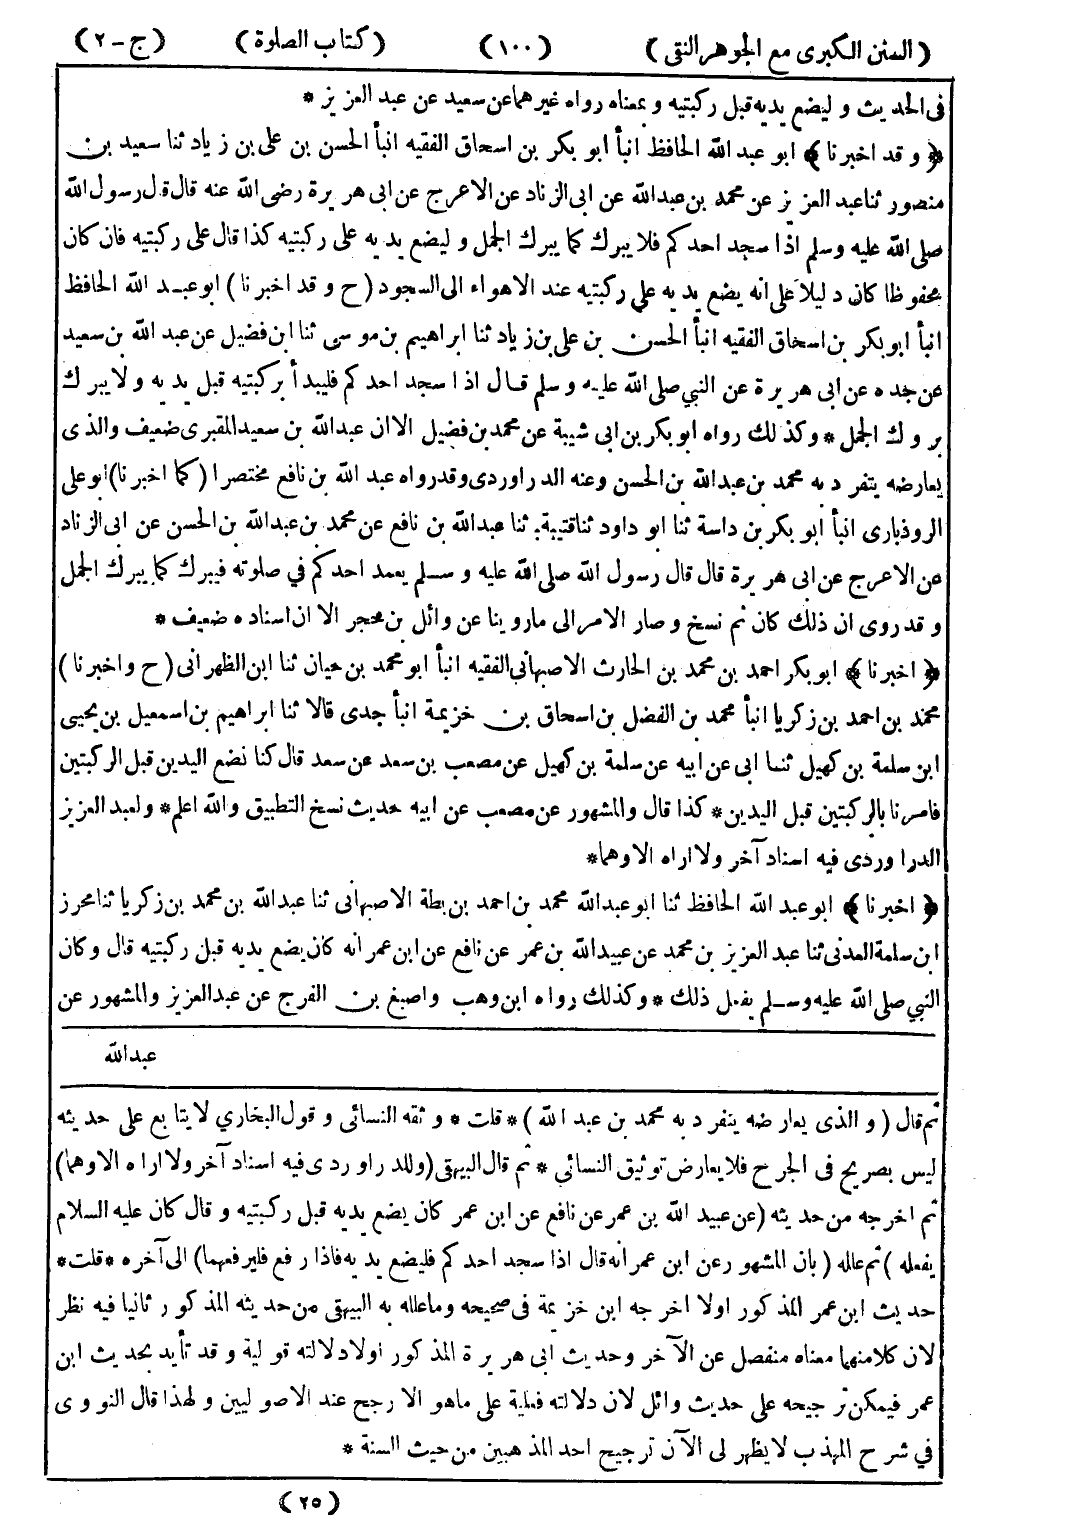 (السنن الكبرى مع الجوهر النقى) (١٠٠) (كتاب الصلوة) (ج-٢)
فى الحديث و ليضع يديه قبل ركبتيه و بمعناه رواه غيرهما عن سعيد عن عبد العزيز *
﴿و قد اخبرنا﴾ ابو عبد الله الحافظ انبأ ابو بكر بن اسحاق الفقيه انبأ الحسن بن على بن زياد ثنا سعيد بن
منصور ثنا عبد العزيز عن محمد بن عبدالله عن ابى الزناد عن الاعرج عن ابى هريرة رضى الله عنه قال قال رسول الله
صلى الله عليه وسلم اذا سجد احدكم فلا يبرك كما يبرك الجمل و ليضع يديه على ركبتيه كذا قال على ركبتيه فان كان
محفوظا كان دليلا على انه يضع يديه على ركبتيه عند الاهواء الى السجود (ح و قد اخبرنا) ابو عبد الله الحافظ
انبأ ابو بكر بن اسحاق الفقيه انبأ الحسن بن على بن زياد ثنا ابراهيم بن موسى ثنا ابن فضيل عن عبد الله بن سعيد
عن جده عن ابى هريرة عن النبي صلى الله عليه و سلم قال اذا سجد احدكم فليبدأ بركبتيه قبل يديه و لا يبرك
بروك الجمل * وكذلك رواه ابو بكر بن ابى شيبة عن محمد بن فضيل الا ان عبدالله بن سعيد المقبرى ضعيف والذى
يعارضه يتفرد به محمد بن عبدالله بن الحسن وعنه الدراوردى وقد رواه عبد الله بن نافع مختصرا (كما اخبرنا) ابو على
الروذبارى انبأ ابو بكر بن داسة ثنا ابو داود ثنا قتيبة ثنا عبدالله بن نافع عن محمد بن عبدالله بن الحسن عن ابى الزناد
عن الاعرج عن ابى هريرة قال قال رسول الله صلى الله عليه و سلم يعمد احدكم في صلوته فيبرك كما يبرك الجمل
و قد روى ان ذلك كان ثم نسخ و صار الامر الى ما روينا عن وائل بن حجر الا ان اسناده ضعيف *
﴿اخبرنا﴾ ابو بكر احمد بن محمد بن الحارث الاصبهانى الفقيه انبأ ابو محمد بن حيان ثنا ابن الظهرانى (ح و اخبرنا)
محمد بن احمد بن زكريا انبأ محمد بن الفضل بن اسحاق بن خزيمة انبأ جدى قالا ثنا ابراهيم بن اسمعيل بن يحيى
ابن سلمة بن كهيل ثنا ابى عن ابيه عن سلمة بن كهيل عن مصعب بن سعد عن سعد قال كنا نضع اليدين قبل الركبتين
فامرنا بالركبتين قبل اليدين * كذا قال والمشهور عن مصعب عن ابيه حديث نسخ التطبيق والله اعلم * ولعبد العزيز
الدراوردى فيه اسناد آخر ولا اراه الا وهما *
﴿اخبرنا﴾ ابو عبد الله الحافظ ثنا ابو عبدالله محمد بن احمد بن بطة الاصبهانى ثنا عبدالله بن محمد بن زكريا ثنا محرز
ابن سلمة العدنى ثنا عبد العزيز بن محمد عن عبيدالله بن عمر عن نافع عن ابن عمر انه كان يضع يديه قبل ركبتيه قال وكان
النبي صلى الله عليه وسلم يفعل ذلك * وكذلك رواه ابن وهب واصبغ بن الفرج عن عبدالعزيز والمشهور عن
عبدالله
ثم قال (و الذى يعارضه ينفرد به محمد بن عبد الله) * قلت * وثقه النسائى و قول البخاري لا يتابع على حديثه
ليس بصريح فى الجرح فلا يعارض توثيق النسائي * ثم قال البيهقى (وللدراوردى فيه اسناد آخر ولا اراه الا وهما)
ثم اخرجه من حديثه (عن عبيد الله بن عمر عن نافع عن ابن عمر كان يضع يديه قبل ركبتيه و قال كان عليه السلام
يفعله) ثم علله (بان المشهور عن ابن عمر انه قال اذا سجد احدكم فليضع يديه فاذا رفع فليرفعهما) الى آخره * قلت *
حديث ابن عمر المذكور اولا اخرجه ابن خزيمة فى صحيحه وما علله به البيهقى من حديثه المذكور ثانيا فيه نظر
لان كلا منهما معناه منفصل عن الآخر وحديث ابى هريرة المذكور اولا دلالته قولية و قد تأيد بحديث ابن
عمر فيمكن ترجيحه على حديث وائل لان دلالته فعلية على ما هو الارجح عند الاصوليين و لهذا قال النووى
في شرح المهذب لا يظهر لى الآن ترجيح احد المذهبين من حيث السنة *
(٢٥)